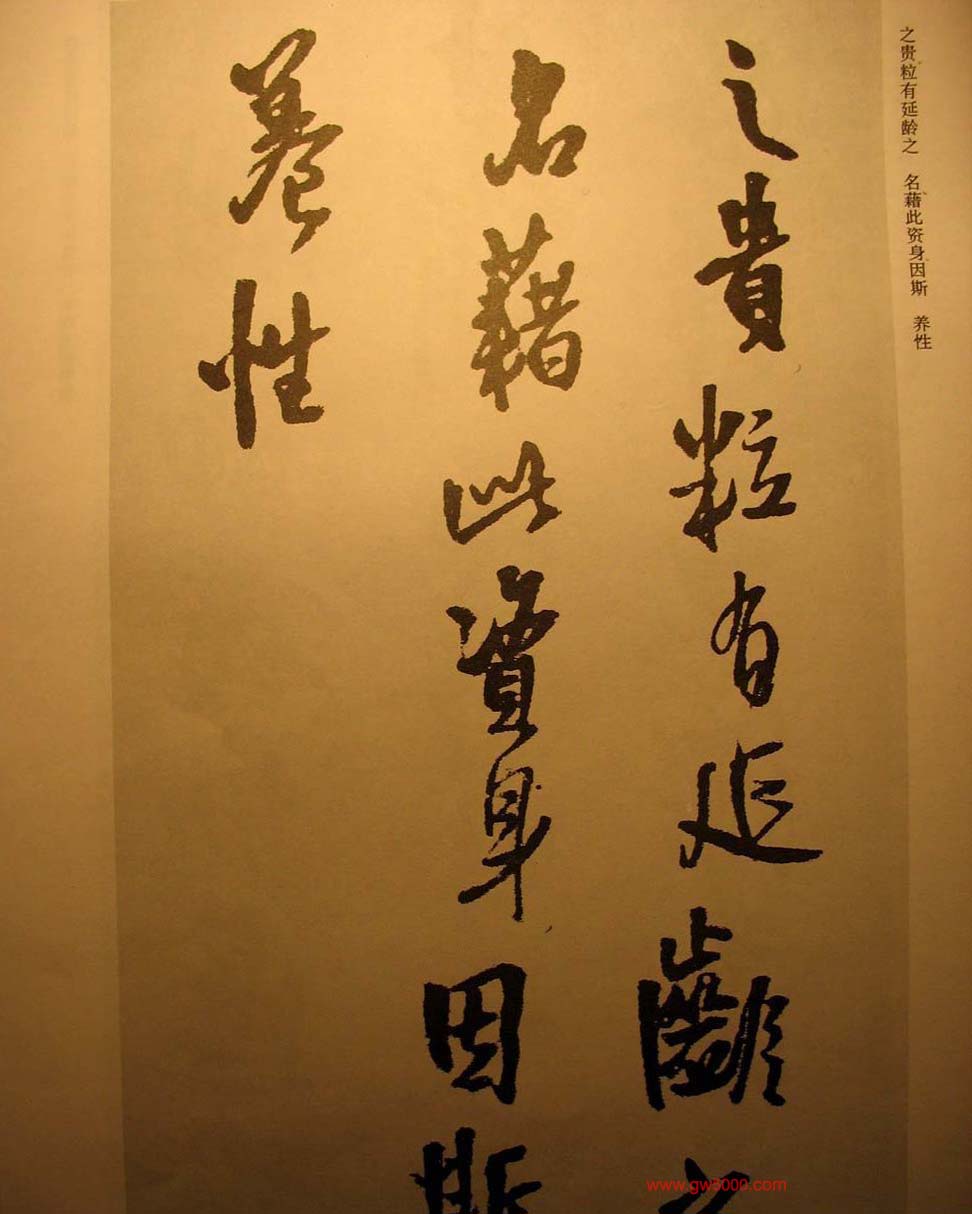 之贵粒有延龄之 名藉此资身因斯 养性
之貴粒有延齡之
名藉此資身因斯
養性
www.gw3000.com